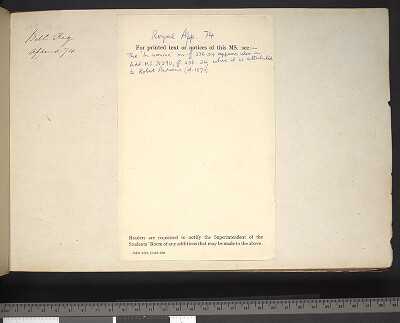 Bibl. Reg.
Append. 74
Royal App. 74
For printed text or notices of this MS. see:—
The 'In nomine' on ff 336-34 appears also in
Add. MS. 31390, f where it is attributed
to Robert Parsons (d. 1570)
Readers are requested to notify the Superintendent of the
Students' Room of any additions that may be made to the above.